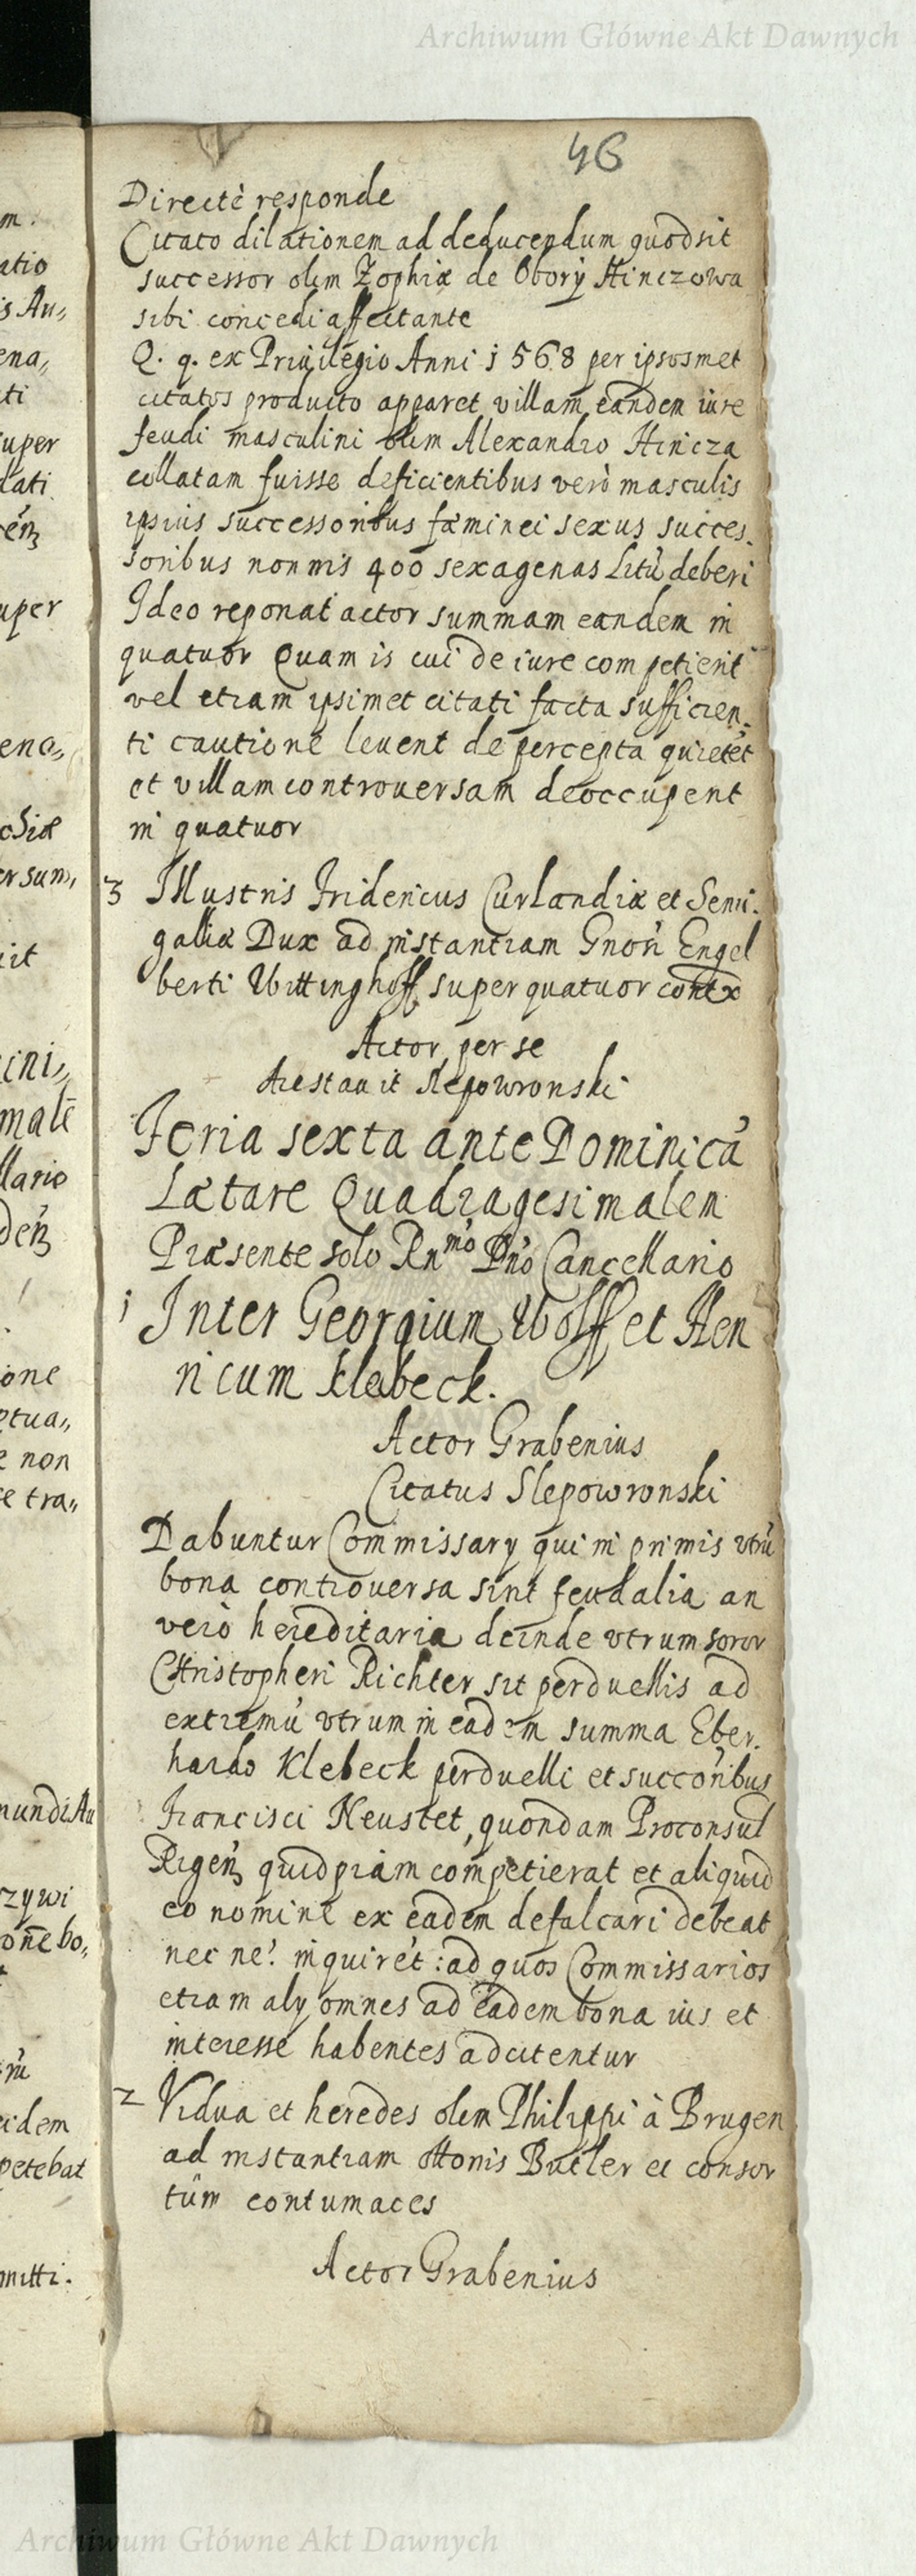 Archiwum Główne Akt Dawnych
46
Directè responde
Citato dilationem ad deducendum quod sit
successor olim Zophiæ de Obory Hinczowa
sibi concedi affectante
Q. q. ex Priuilegio Anni 1568 per ipsosmet
citatos producto apparet villam eandem iure
feudi masculini olim Alexandro Hincza
collatam fuisse deficientibus verò masculis
ipsius successoribus fæminei sexus succes-
soribus nonnis 400 sexagenas Litũ deberi
Ideo reponat actor summam eandem in
quatuor Quam is cui de iure competierit
vel etiam ipsimet citati facta sufficien-
ti cautione leuent de percepta quietẽt
et villam controuersam deoccupent
in quatuor
3 Illustris Fridericus Curlandiæ et Semi-
galliæ Dux ad instantiam Gnõri Engel
berti Wittinghoff super quatuor contx
Actor per se
Arestauit Slepowronski
Feria sexta ante Dominicã
Lætare Quadragesimalem
Præsente solo Rnmo Dño Cancellario
1 Inter Georgium Wolff et Hen
ricum Klebeck.
Actor Grabenius
Citatus Slepowronski
Dabuntur Commissary qui in primis vtrũ
bona controuersa sint feudalia an
verò hereditaria deinde vtrum soror
Christopheri Richter sit perduellis ad
extremũ vtrum in eadem summa Eber-
hardo Klebeck perduelli et succõribus
Francisci Neustet, quondam Proconsul
Rigeñ quidpiam competierat et aliquid
eo nomine ex eadem defalcari debeat
nec ne? inquirẽt: ad quos Commissarios
etiam aly omnes ad eadem bona ius et
interesse habentes adcitentur
2 Vidua et heredes olim Philippi à Brugen
ad instantiam Ottonis Butler et consor
tũm contumaces
Actor Grabenius
m.
atio
is Au,,
ena,,
ti
uper
dati
uper
eno,,
chiæ
er sum,,
it
ini,,
llario
one
ptua,,
e non
e tra,,
mundi Au
zywi
bo,,
eidem
petebat
mitti.
Archiwum Główne Akt Dawnych